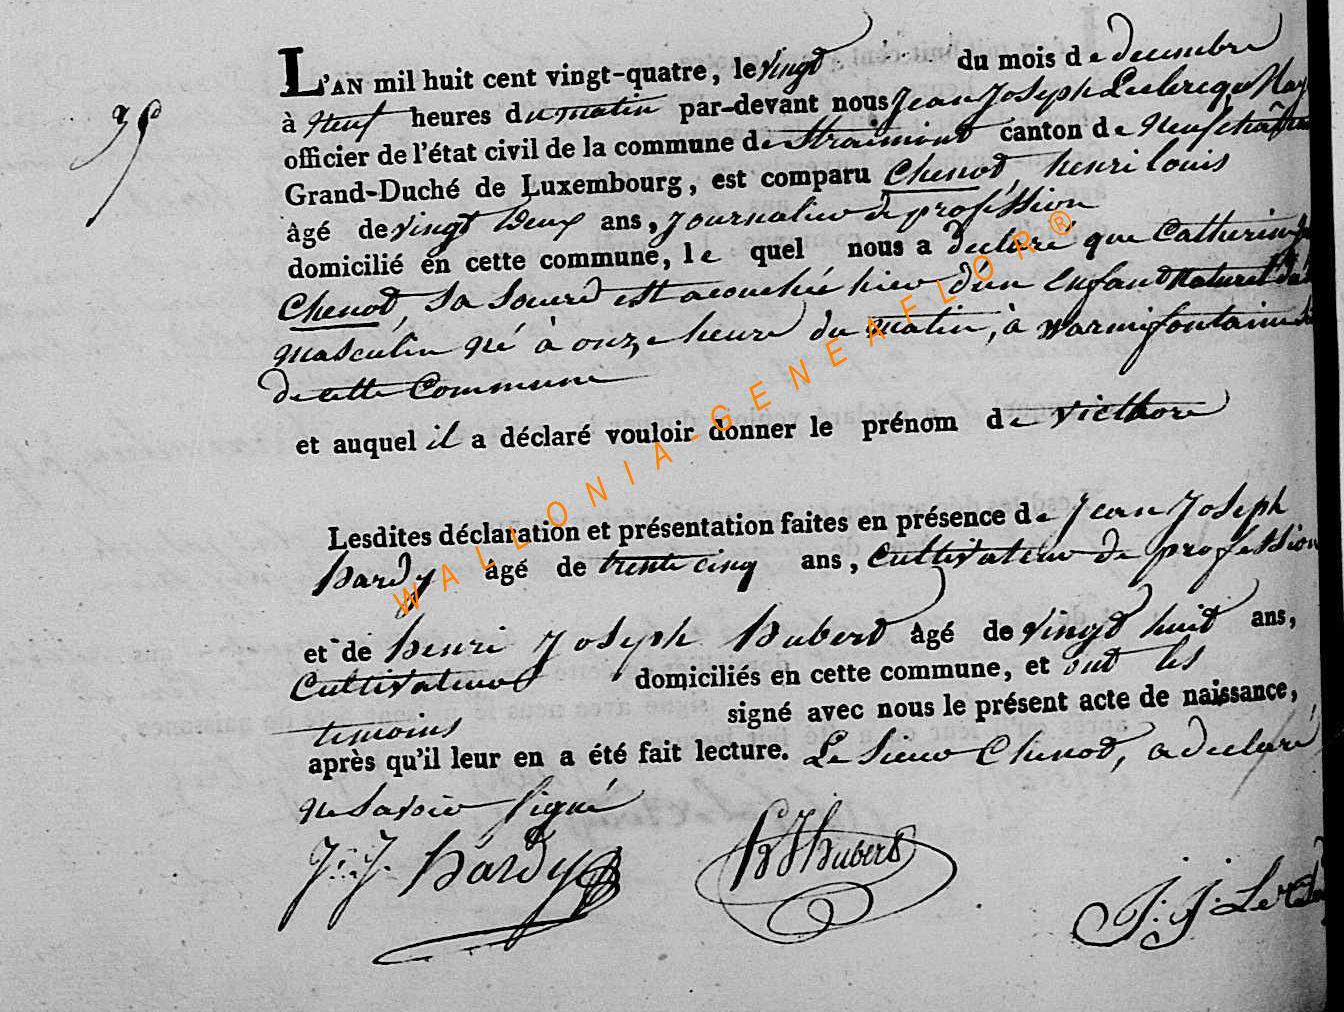 35
L'AN mil huit cent vingt-quatre, le vingt du mois de decembre
à neuf heures du matin par-devant nous Jean Joseph Leclercq
officier de l'état civil de la commune de Straimont canton de Neufchateau
Grand-Duché de Luxembourg, est comparu Chenot, henri louis
âgé de vingt deux ans, journalier de profession
domicilié en cette commune, le quel nous a declaré que Catherine
Chenot, sa soeure est acouchée hier d'un enfant naturel
masculin né à onze heure du matin, à warmifontaine
de cette Commune
et auquel il a déclaré vouloir donner le prénom de victhore
Lesdites déclaration et présentation faites en présence de Jean Joseph
hardy âgé de trente cinq ans, Cultivateur de profession
et de henri Joseph hubert âgé de vingt huit ans,
Cultivateur domiciliés en cette commune, et ont les
temoins signé avec nous le présent acte de naissance,
après qu'il leur en a été fait lecture. Le sieur Chenot, a declaré
ne savoir signé
J: J. hardy
h J hubert
J: J: Le
WALLONIA-GENEAFLOR®